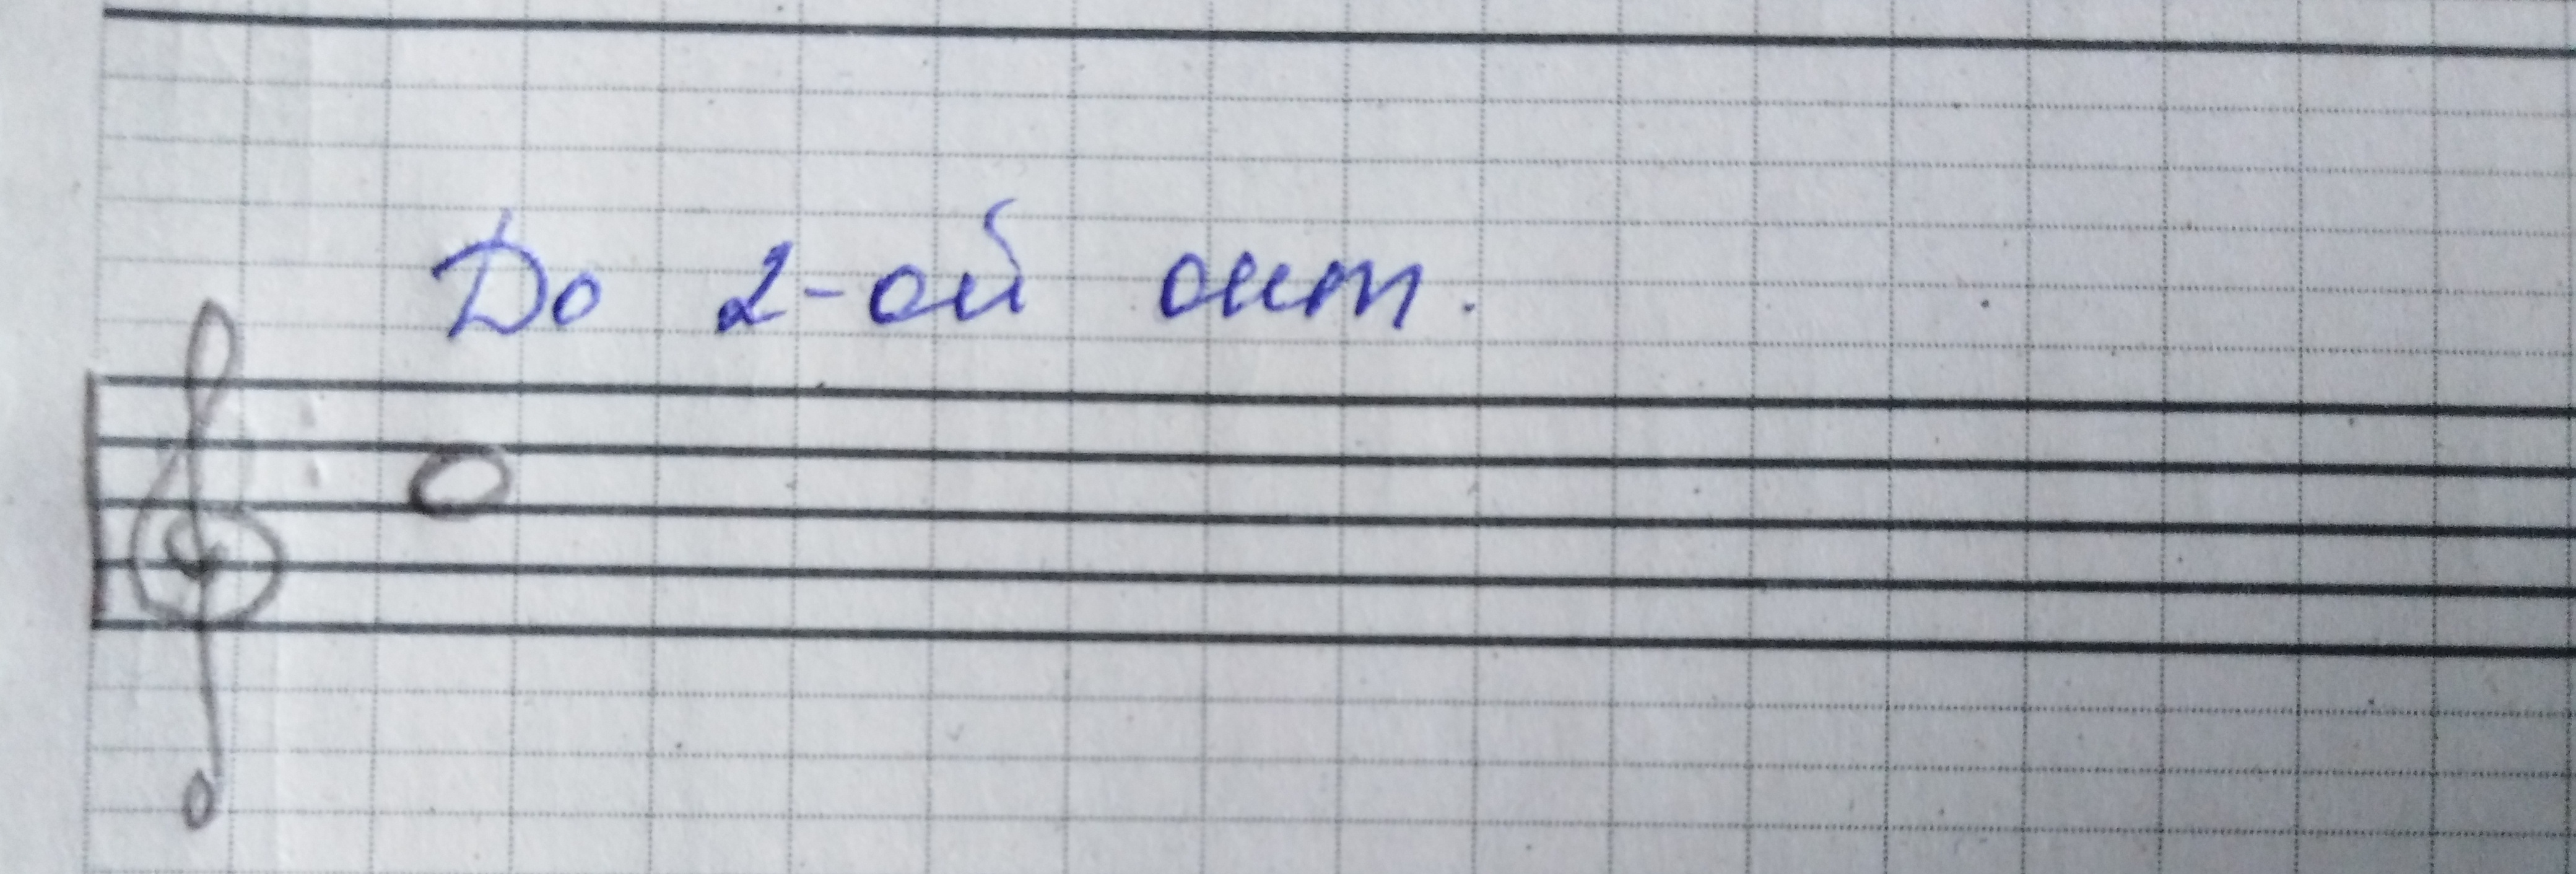 До 2-ой окт.